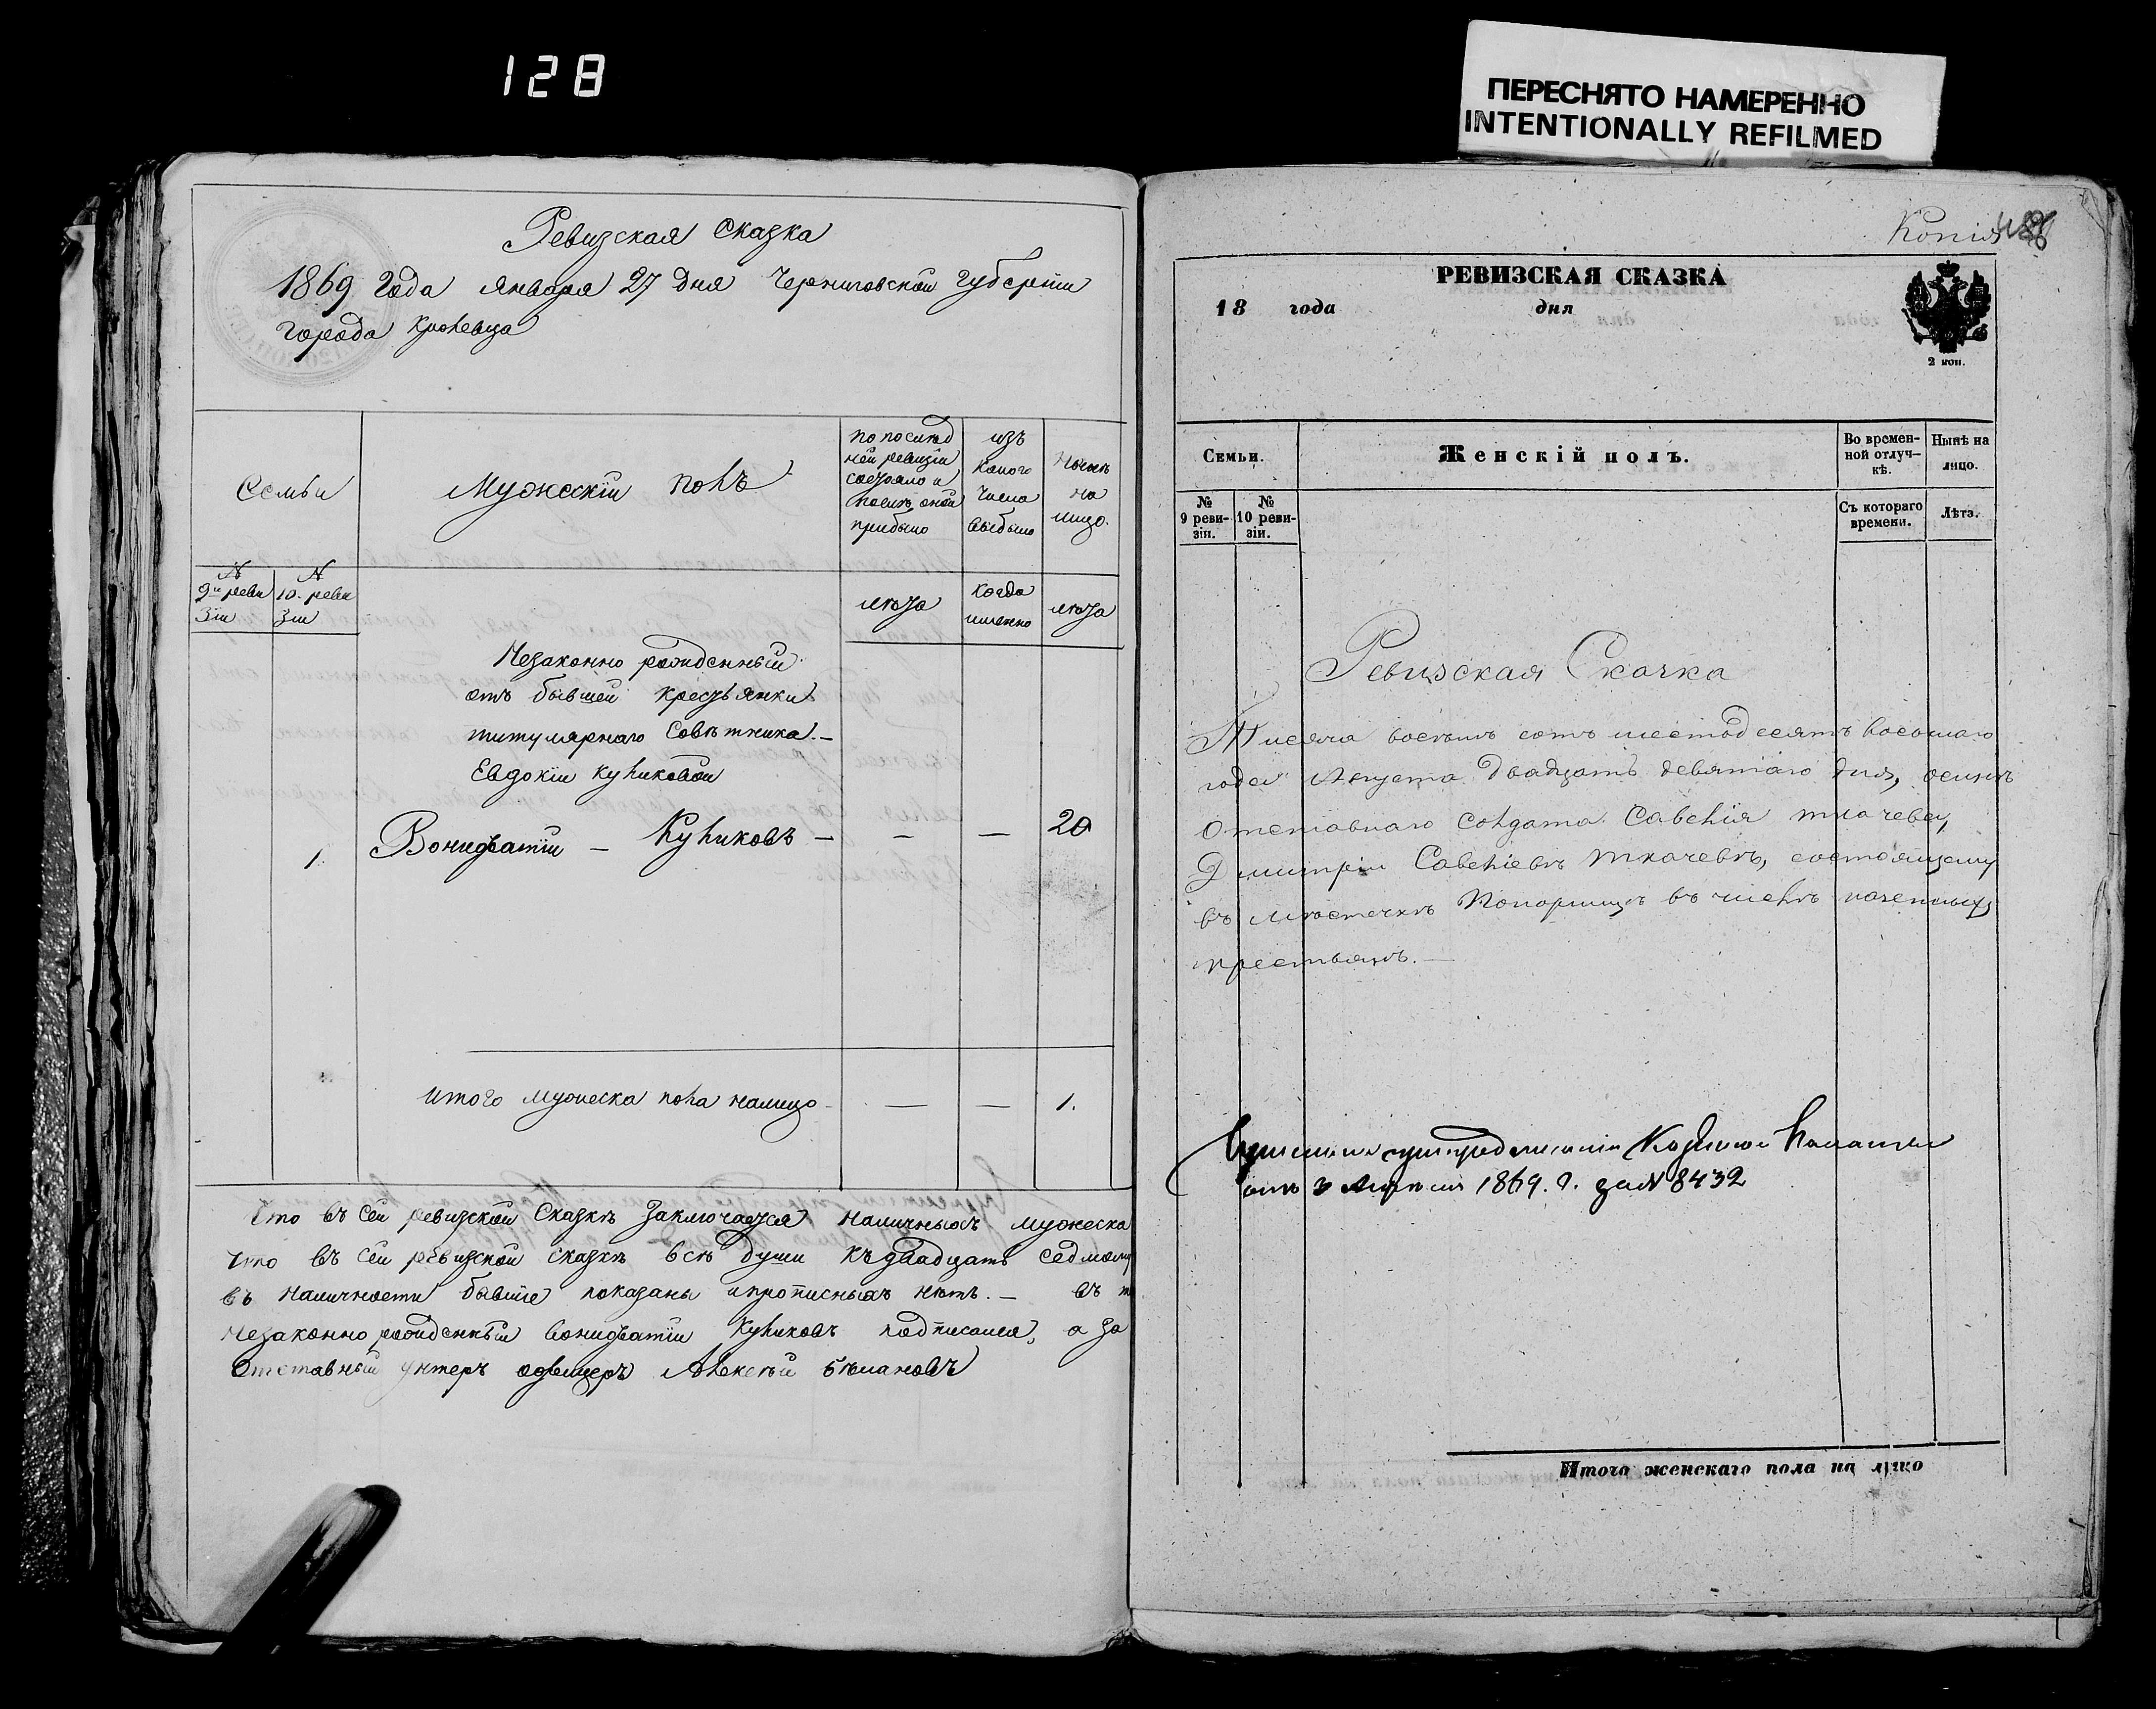 128
ПЕРЕСНЯТО НАМЕРЕННО
INTENTIONALLY REFILMED
Ревизская Сказка
1869 Года Января 27 дня Черниговской Губерніи
Города Кролевца
Семьи
Мужескій полъ
по послѣд
ней ревизіи
состояло и
послѣ оной
прибыло
изъ
коего
числа
выбыло
нынѣ
на
лицо.
№
9й реви
зіи
№
10. реви
зіи
лѣта
когда
именно
лѣта
Незаконно рожденный
отъ бывшей крестьянки
титулярнаго Совѣтника
Евдокіи Куликовой
1. Вонифатій — Куликовъ — — — 20
Итого мужеска пола налицо — — 1.
Что въ сей ревизской Сказкѣ Заключается Наличныхъ мужеска
Что въ сей ревизской сказкѣ всѣ души къ двадцать седмому
въ Наличности бывшіе показаны и прописныхъ нѣтъ. — въ т
Незаконно рожденный Вонифатій Куликовъ подписался, а за
Отставный унтеръ офицеръ Алексѣй Бѣлановъ
Копія
РЕВИЗСКАЯ СКАЗКА
18 года дня
2 коп.
Семьи.
Женскій полъ.
Во времен-
ной отлуч-
кѣ.
Нынѣ на
лицо.
№
9 реви-
зіи.
№
10 реви-
зіи.
Съ котораго
времени.
Лѣта.
Ревизская Скачка
Тысяча восемь сотъ шестодесятъ восьмаго
года Августа двадцать девятаго дня, о сынѣ
Отставнаго Солдата Савелія Ткачева,
Димитріи Савеліевѣ Ткачевѣ, состоящему
въ мѣстечкѣ Понорницѣ въ числѣ казенныхъ
крестьянъ. —
предписанія Казенной Палаты
отъ 1869. г. за № 8432
Итого женскаго пола на лицо